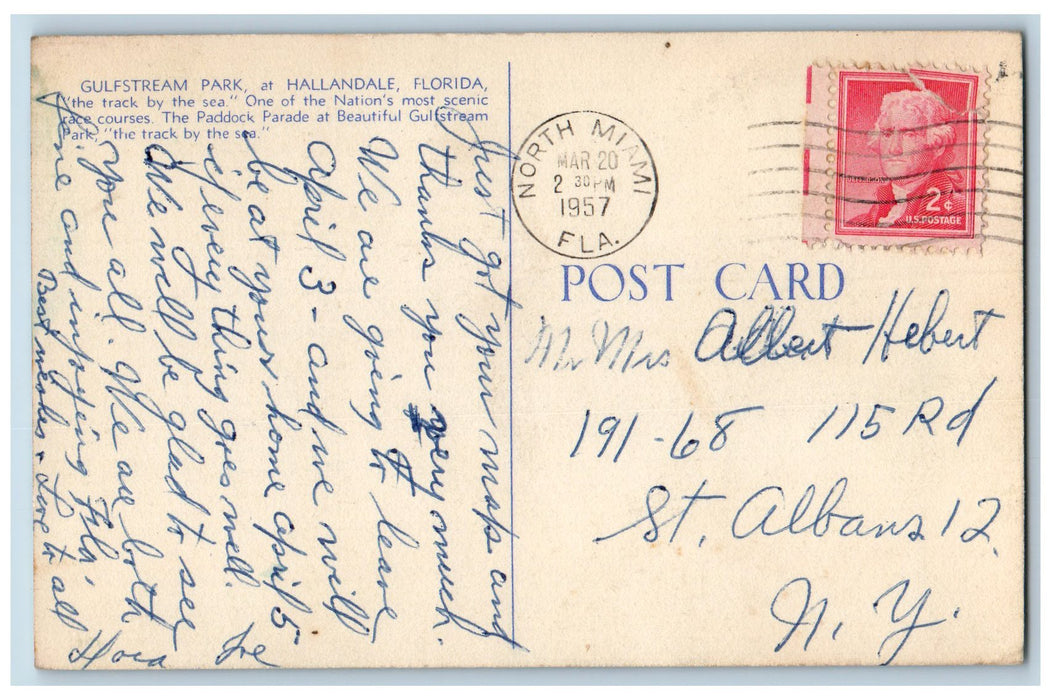 GULFSTREAM PARK, at HALLANDALE, FLORIDA,
"the track by the sea." One of the Nation's most scenic
race courses. The Paddock Parade at Beautiful Gulfstream
Park, "the track by the sea."
Just got your maps and
thanks you very much.
We are going to leave
April 3 - and we will
be at your home april 5
if every thing goes well.
We will be glad to see
you all. We are both
fine and injoying Fla'
Best wishes & Love to all
NORTH MIAMI
MAR 20
2 30 PM
1957
FLA.
2¢
U.S. POSTAGE
POST CARD
Mr Mrs Albert Hebert
191-68 115 Rd
St. Albans 12.
N. Y.